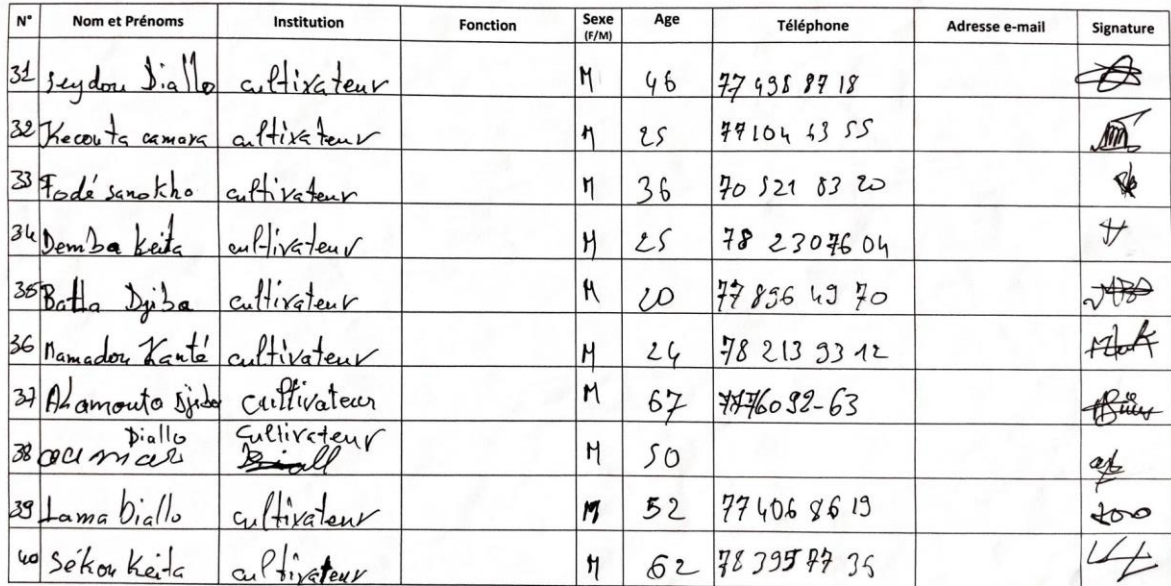 N° Nom et Prénoms Institution Fonction Sexe (F/M) Age Téléphone Adresse e-mail Signature
31 Seydou Diallo cultivateur M 46 77 498 87 18
32 Kecouta camara cultivateur M 25 77 104 43 55
33 Fodé sanokho cultivateur M 36 70 521 83 20
34 Demba keita cultivateur M 25 78 230 76 04
35 Batta Djiba cultivateur M 20 77 896 49 70
36 Mamadou Kanté cultivateur M 24 78 213 93 12
37 Cultivateur M 67 7776092-63
38 Diallo Cultivateur M 50
39 Lama Diallo cultivateur M 52 77 406 86 19
40 Sékou Keita cultivateur M 62 78 395 77 35